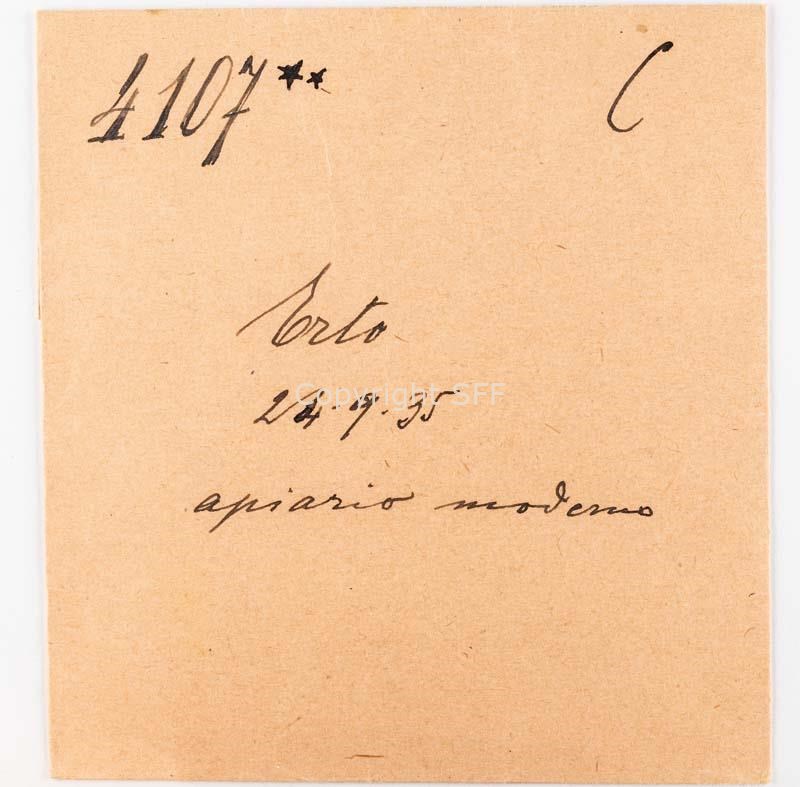 4107** C
Erto
24.9.35
Copyright SFF
apiario moderno